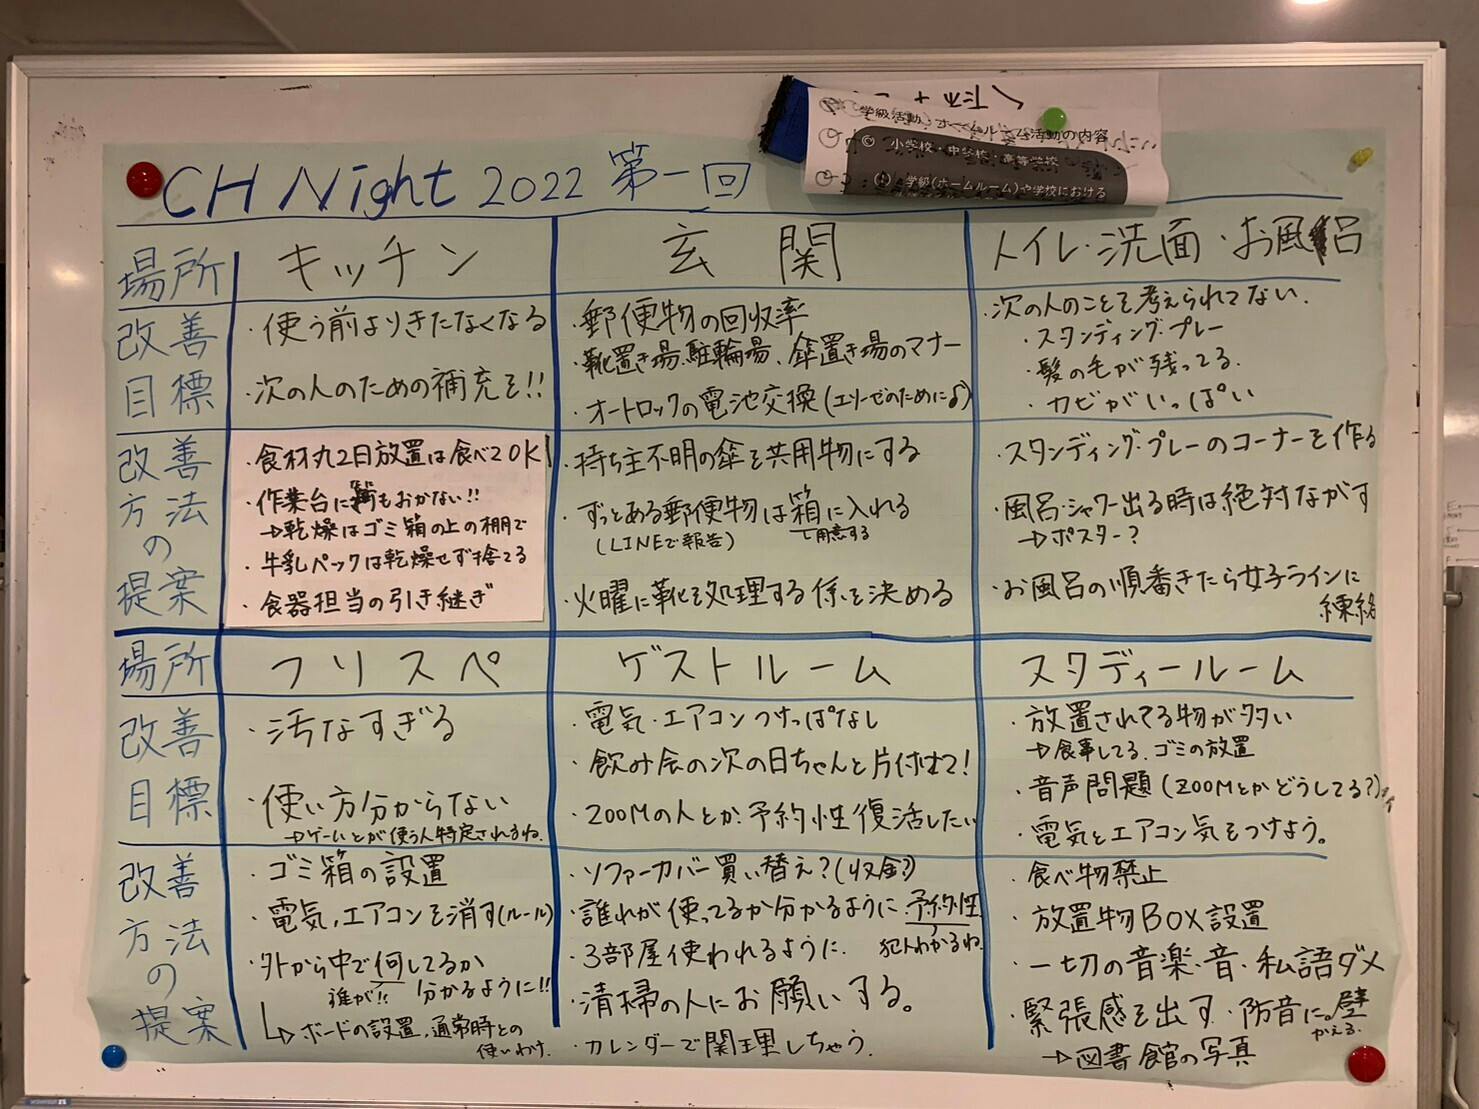 学級活動、ホームルーム活動の内容
小学校・中学校・高等学校
学級(ホームルーム)や学校における
CH Night 2022 第一回
場所
キッチン
玄関
トイレ・洗面・お風呂
改善目標
・使う前よりきたなくなる
・次の人のための補充を!!
・郵便物の回収率
・靴置き場、駐輪場、傘置き場のマナー
・オートロックの電池交換(エリーゼのために♪)
・次の人のことを考えられてない.
・スタンディング・プレー
・髪の毛が残ってる.
・カビがいっぱい
改善方法の提案
・食材丸2日放置は食べてOK!
・作業台に何もおかない!!
→乾燥はゴミ箱の上の棚で
・牛乳パックは乾燥せず捨てる
・食器担当の引き継ぎ
・持ち主不明の傘を共用物にする
・ずっとある郵便物は箱に入れる
(LINEで報告)
用意する
・火曜に靴を処理する係を決める
・スタンディング・プレーのコーナーを作る
・風呂・シャワー出る時は絶対ながす
→ポスター?
・お風呂の順番きたら女子ラインに
練絡
場所
フリスペ
ゲストルーム
スタディールーム
改善目標
・汚なすぎる
・使い方分からない
→ゲームとか使う人特定されるね.
・電気・エアコンつけっぱなし
・飲み会の次の日ちゃんと片付けて!
・ZOOMの人とか.予約性復活したい
・放置されてる物が多い
→食事してる.ゴミの放置
・音声問題(ZOOMとかどうしてる?)
・電気とエアコン気をつけよう。
改善方法の提案
・ゴミ箱の設置
・電気,エアコンを消す(ルール)
・外から中で何してるか
誰が!! 分かるように!!
→ボードの設置,通常時との
使いわけ.
・ソファーカバー買い替え?(収金?)
・誰れが使ってるか分かるように.予約性
・3部屋使われるように. 犯人わかるね.
・清掃の人にお願いする。
・カレンダーで関理しちゃう.
・食べ物禁止
・放置物BOX設置
・一切の音楽・音・私語ダメ
・緊張感を出す.防音に。壁
かえる.
→図書館の写真